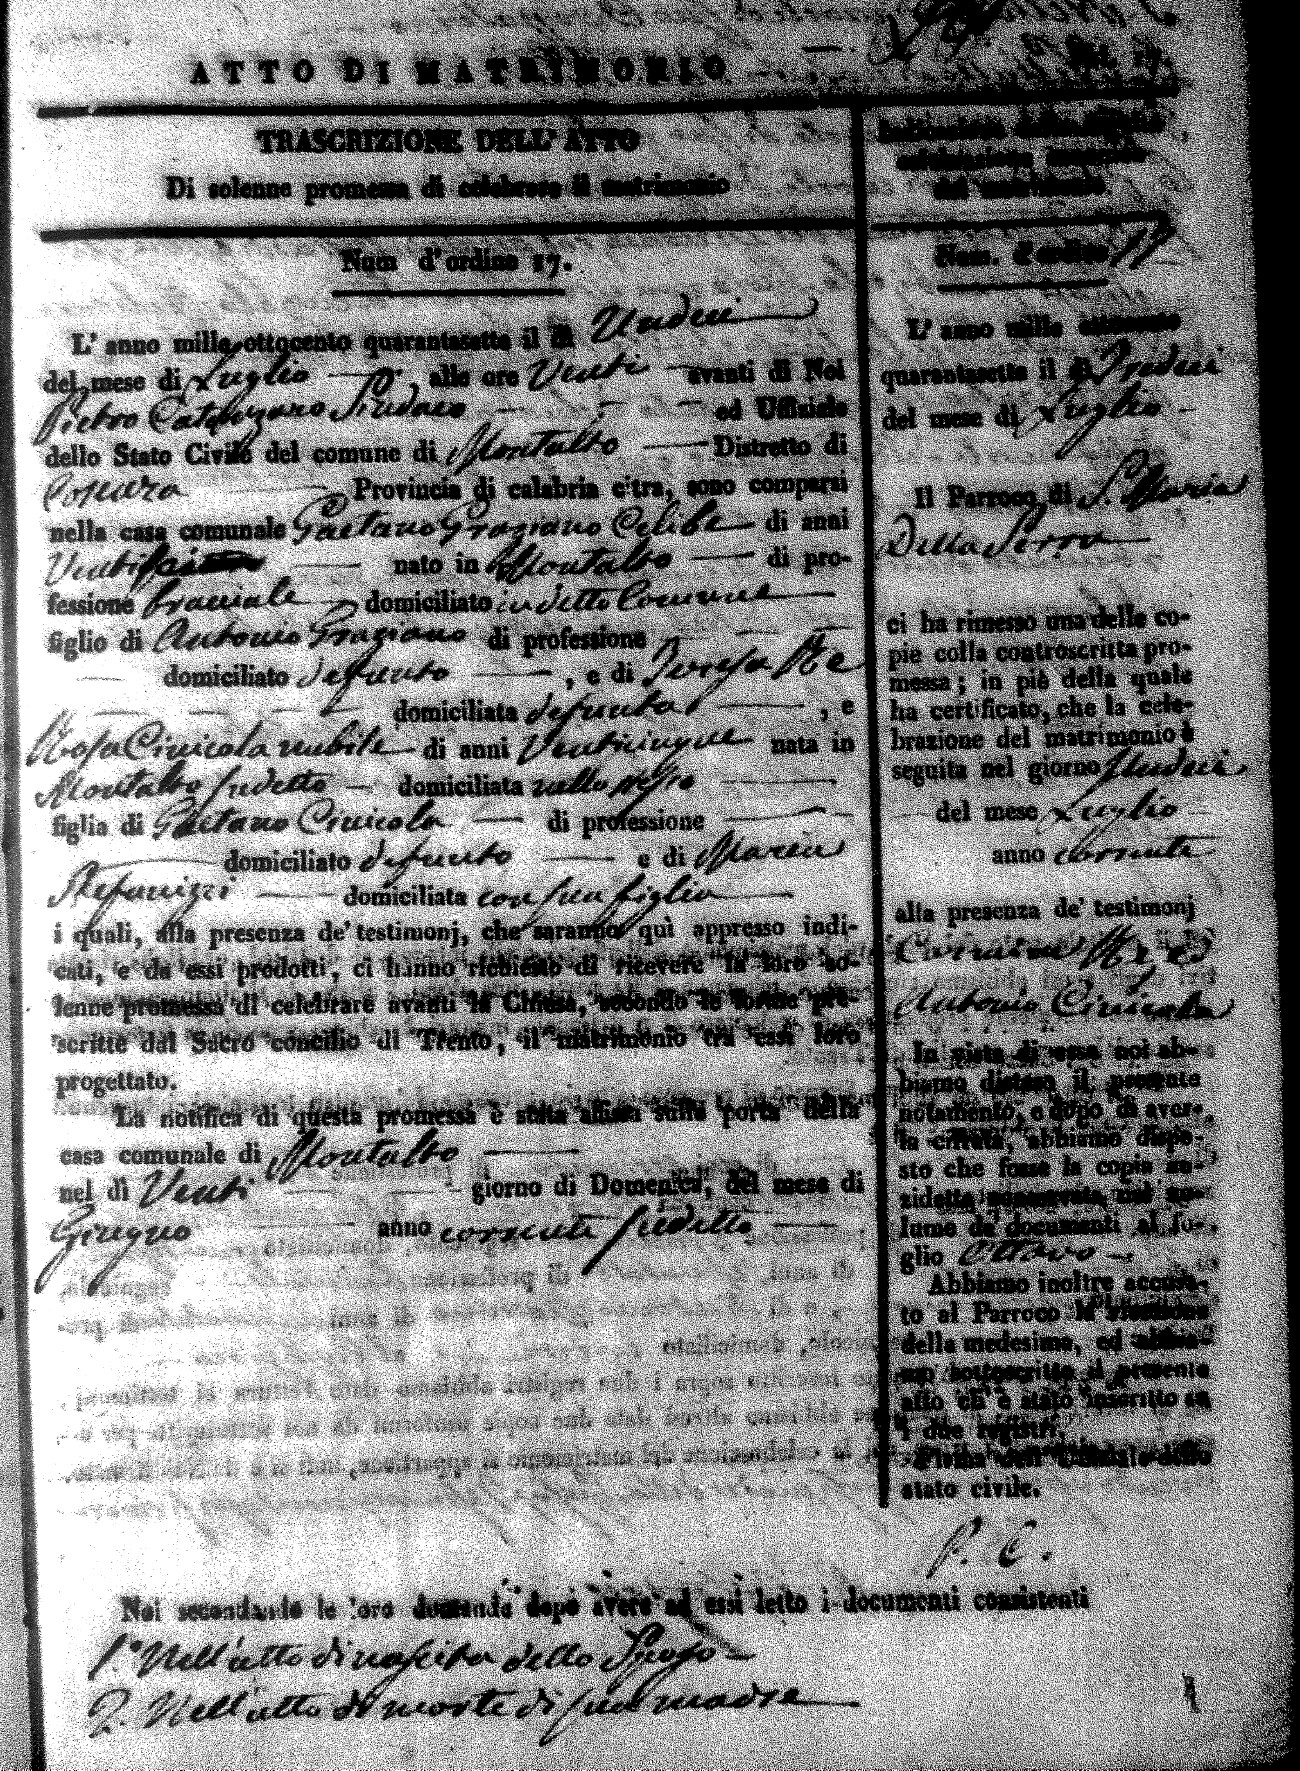 ATTO DI MATRIMONIO
TRASCRIZIONE DELL' ATTO
Di solenne promessa di celebrare il matrimonio
Num d'ordine 17.
L' anno mille ottocento quarantasette il dì Undeci
del mese di Luglio, alle ore Venti avanti di Noi
Pietro Catanzaro Sindaco ed Uffiziale
dello Stato Civile del comune di Montalto Distretto di
Cosenza Provincia di calabria citra, sono comparsi
nella casa comunale Gaetano Graziano Celibe di anni
nato in Montalto di pro-
fessione bracciale domiciliato in detto Comune
figlio di Antonio Graziano di professione
domiciliato defunto, e di Teresa
domiciliata defunta, e
Rosa Civicola nubile di anni Venticinque nata in
Montalto sudetto domiciliata nello stesso
figlia di Gaetano Civicola di professione
domiciliato defunto e di Maria
Stefanizzi domiciliata con sua figlia
i quali, alla presenza de' testimonj, che saranno quì appresso indi-
cati, e da essi prodotti, ci hanno richiesto di ricevere la loro so-
lenne promessa di celebrare avanti la Chiesa, secondo le forme pre-
scritte dal Sacro concilio di Trento, il matrimonio tra essi loro
progettato.
La notifica di questa promessa è stata affissa sulla porta della
casa comunale di Montalto
nel dì Venti giorno di Domenica, del mese di
Giugno anno corrente sudetto
Noi secondando le loro domande dopo avere ad essi letto i documenti consistenti
1.° Nell'atto di nascita dello Sposo
2. Nell'atto di morte di sua madre
celebrazione
del matrimonio
Num. d'ordine 17
L' anno mille ottocento
quarantasette il dì Tredeci
del mese di Luglio
Il Parroco di S. Maria
Della Serra
ci ha rimesso una delle co-
pie colla controscritta pro-
messa; in piè della quale
ha certificato, che la cele-
brazione del matrimonio è
seguita nel giorno Undeci
del mese Luglio
anno corrente
alla presenza de' testimonj
Antonio Civicola
In vista di essa noi ab-
biamo disteso il presente
notamento, e dopo di aver-
la cifrata, abbiamo dispo-
sto che fosse la copia an-
zidetta conservata nel vo-
lume de' documenti al fo-
glio Ottavo
Abbiamo inoltre accusa-
to al Parroco la ricezione
della medesima, ed abbia-
mo sottoscritto il presente
atto ch' è stato inscritto su
i due registri.
Firma dell' Uffiziale dello
stato civile.
P. C.